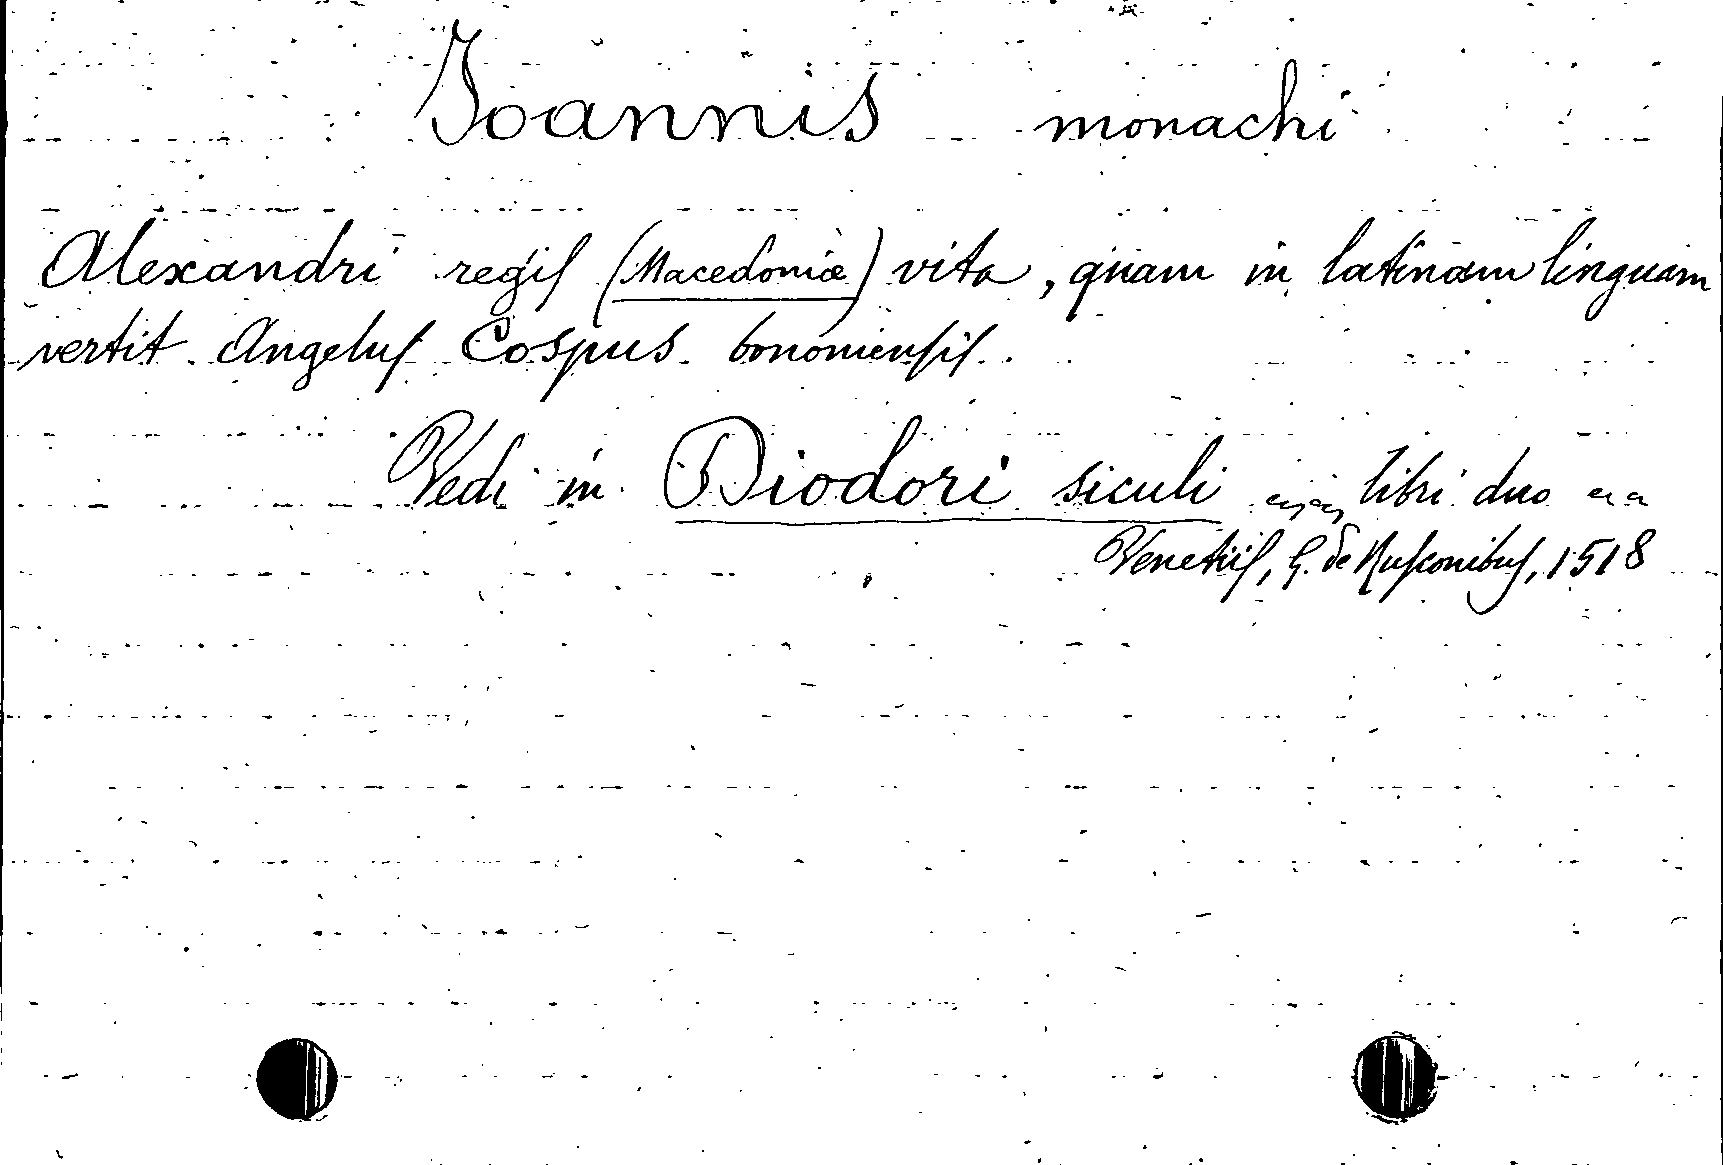 Joannis monachi
Alexandri regis (Macedoniæ) vita, quam in latinam linguam
vertit Angelus Cospus bononiensis.
Vedi in Diodori siculi libri duo
Venetiis, G. de Rusconibus, 1518